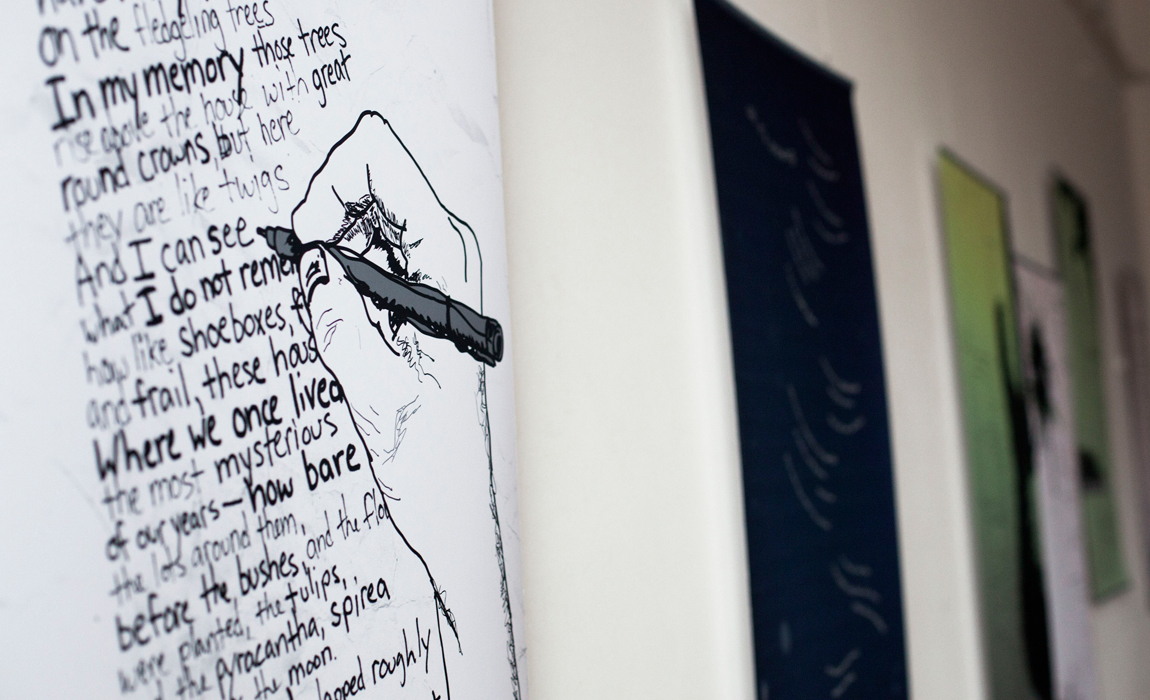 on the fledgeling trees
In my memory those trees
rise above the house with great
round crowns, but here
they are like twigs
And I can see
what I do not remem
how like shoeboxes, f
and frail, these hous
Where we once lived
the most mysterious
of our years—how bare
the lots around them,
before the bushes, and the flo
were planted, the tulips,
the pyracantha, spirea
the moon.
roughly